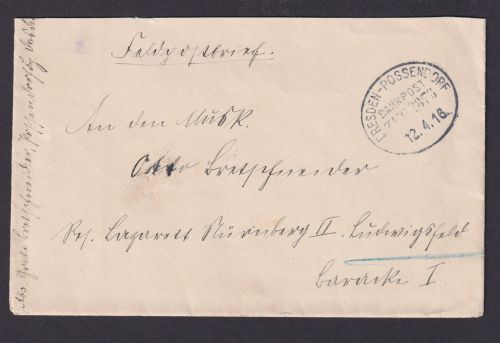 Feldpostbrief.
DRESDEN-POSSENDORF
BAHNPOST
12.4.16.
An den Musk.
Otto Bretschneider
Res. Lazarett Nürnberg II. Ludwigsfeld
Baracke I
Bretschneider, Possendorf